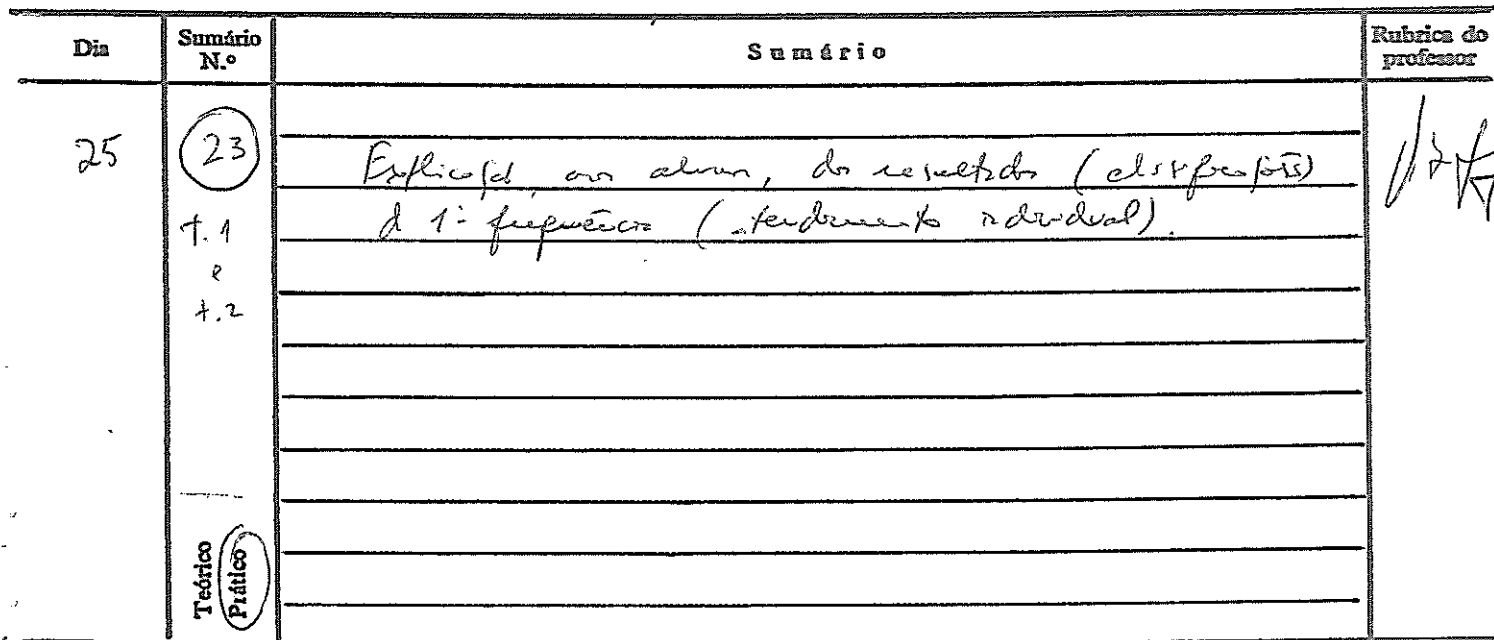 Dia
Sumário N.º
Sumário
Rubrica do professor
25
23
t.1
e
t.2
Explicação, aos alunos, dos resultados (classificações)
da 1ª frequência (atendimento individual).
Teórico
Prático